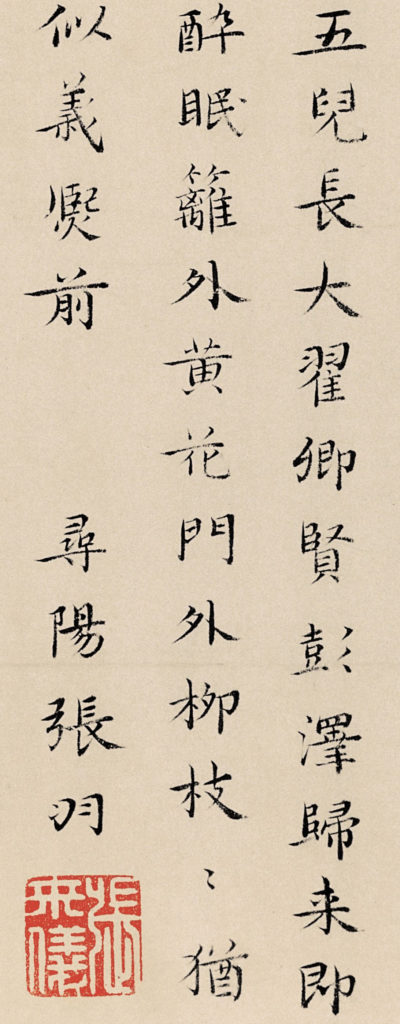 五兒長大翟卿賢彭澤歸来即
醉眠籬外黄花門外柳枝〻猶
似義熙前
尋陽張羽